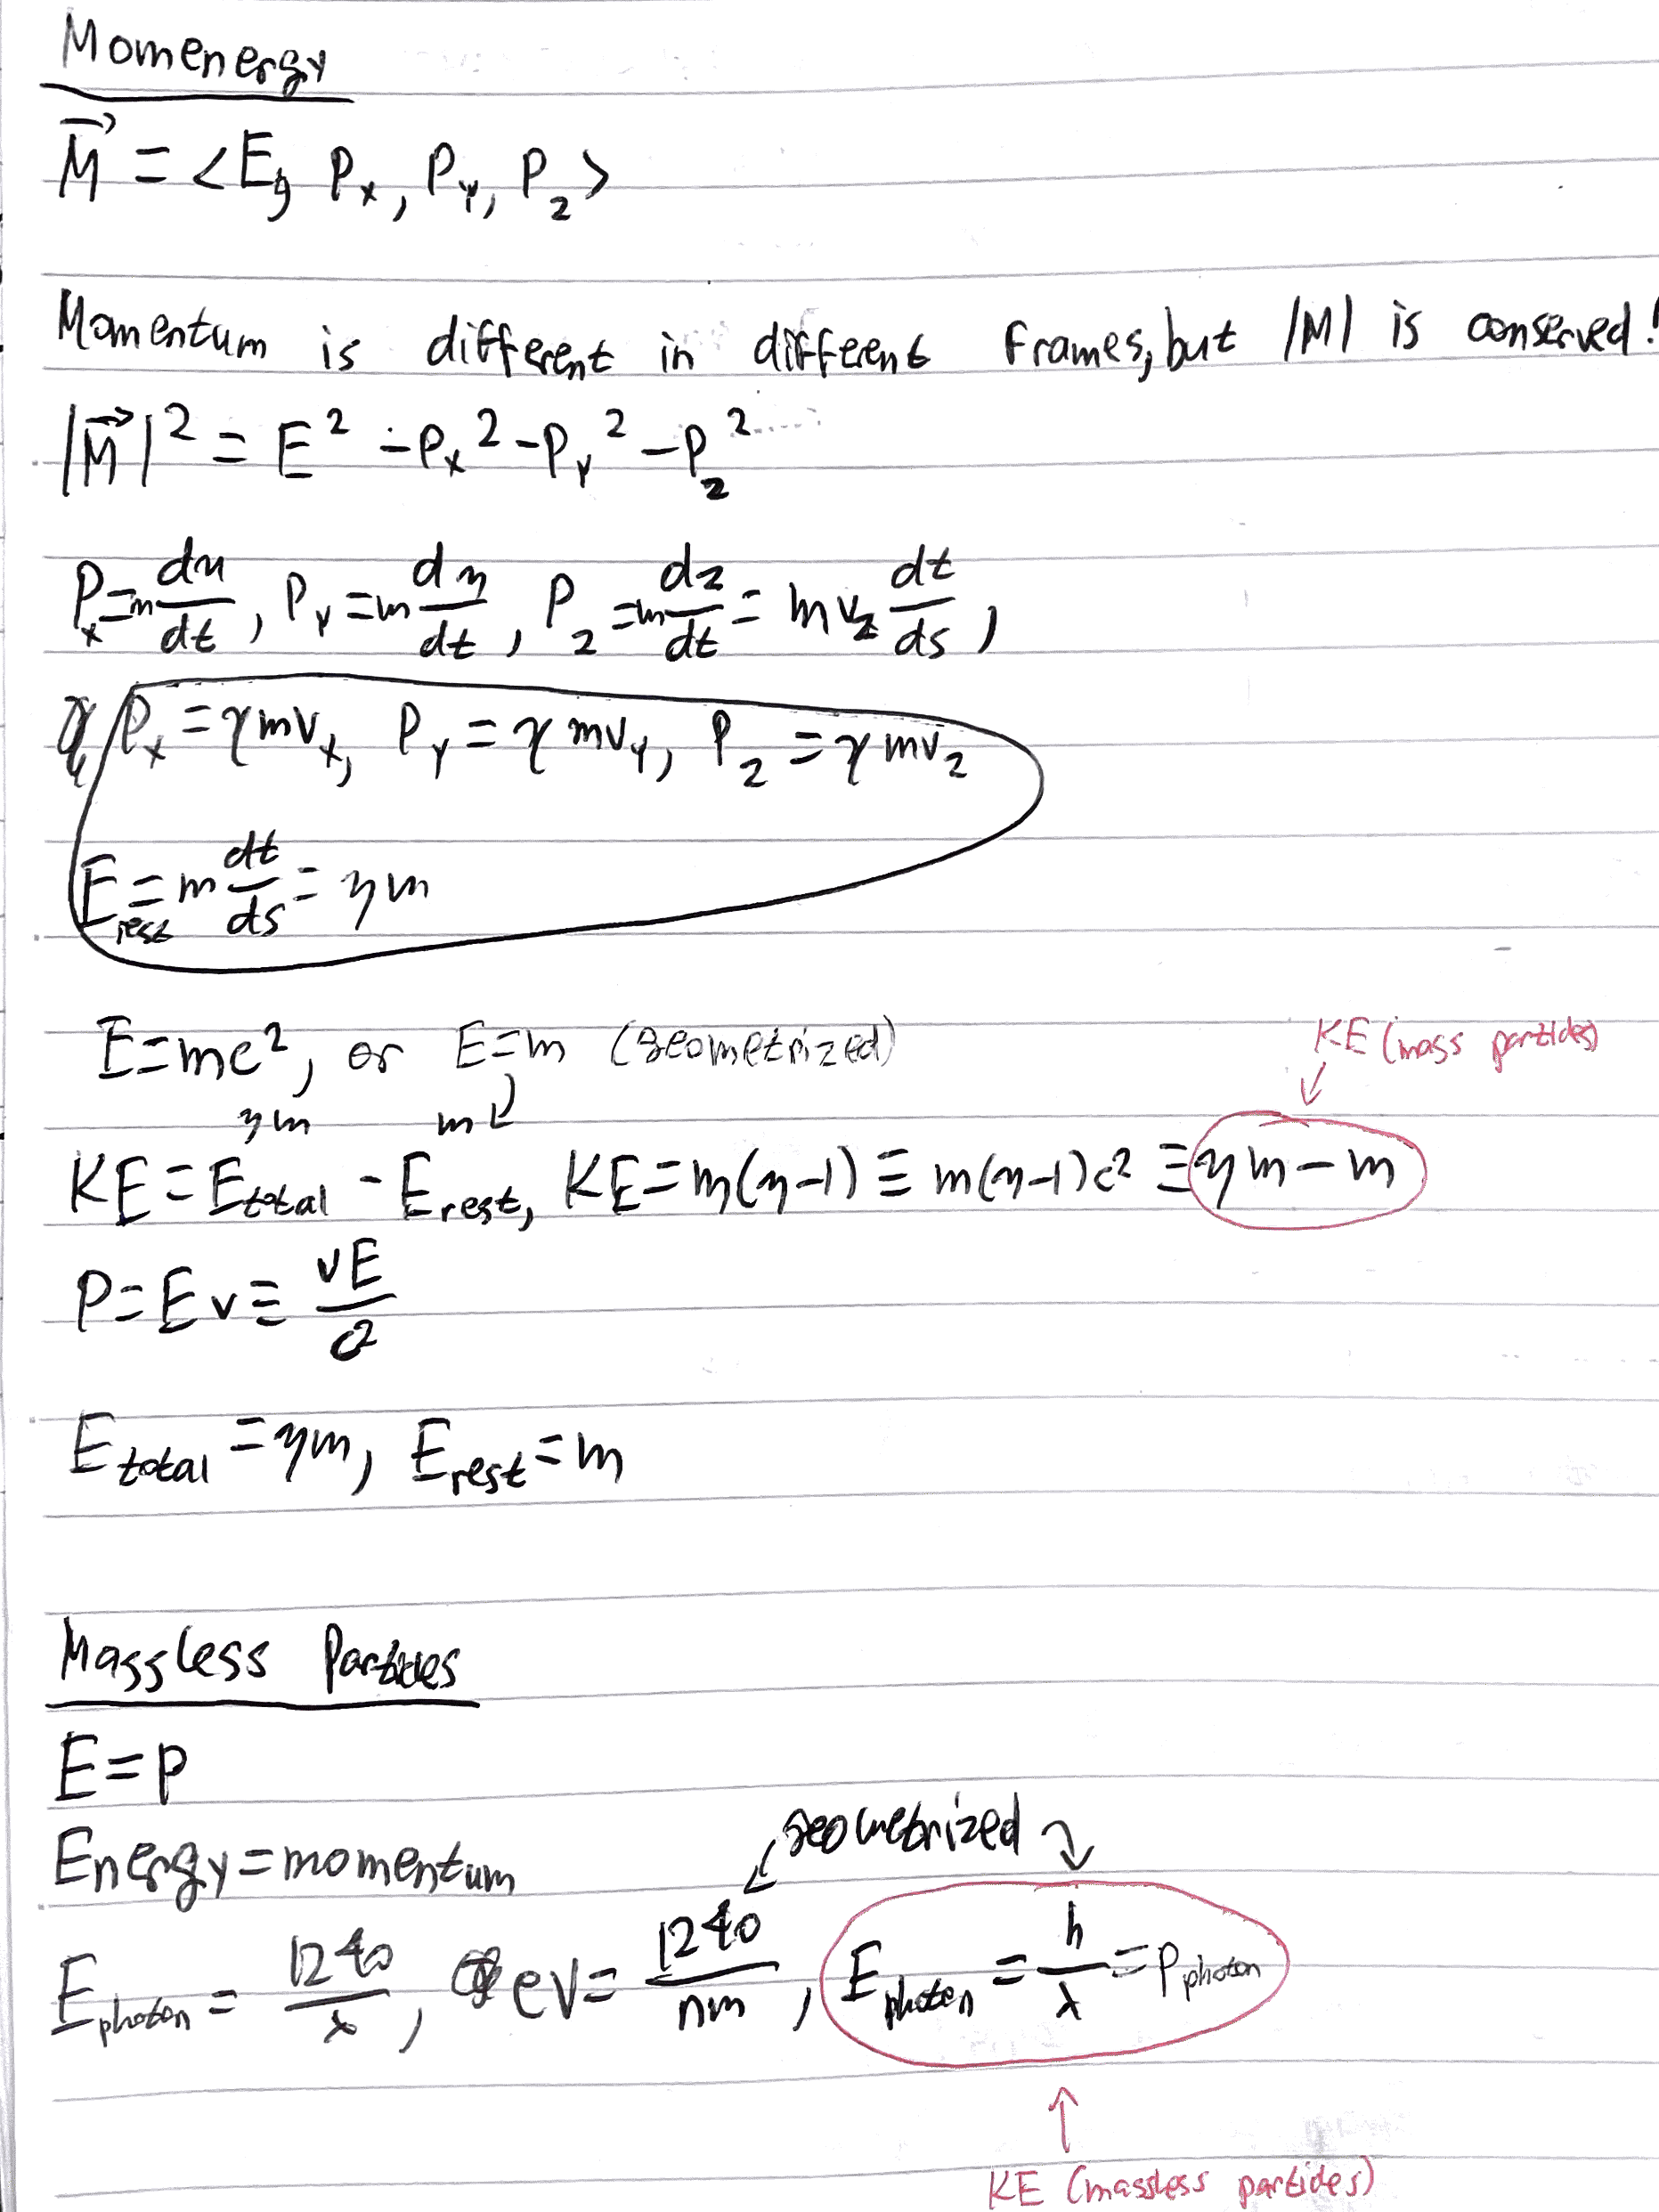 Momenergy
M⃗ = <E, Px, Py, Pz>
Momentum is different in different frames, but |M| is conserved!
|M⃗|² = E² - Px² - Py² - Pz²
Px = m dx/dt, Py = m dy/dt, Pz = m dz/dt = m vz dt/ds,
Px = γmvx, Py = γmvy, Pz = γmvz
E rest = m dt/ds = γm
E = mc², or E = m (geometrized)
KE (mass particles)
γm m
KE = E total - E rest, KE = m(γ-1) ≡ m(γ-1)c² ≡ γm - m
P = Ev ≡ vE/c²
E total = γm, E rest = m
Massless Particles
E = p
Energy = momentum
geometrized
E photon = 1240/λ, eV = 1240/nm, E photon = h/λ = P photon
KE (massless particles)